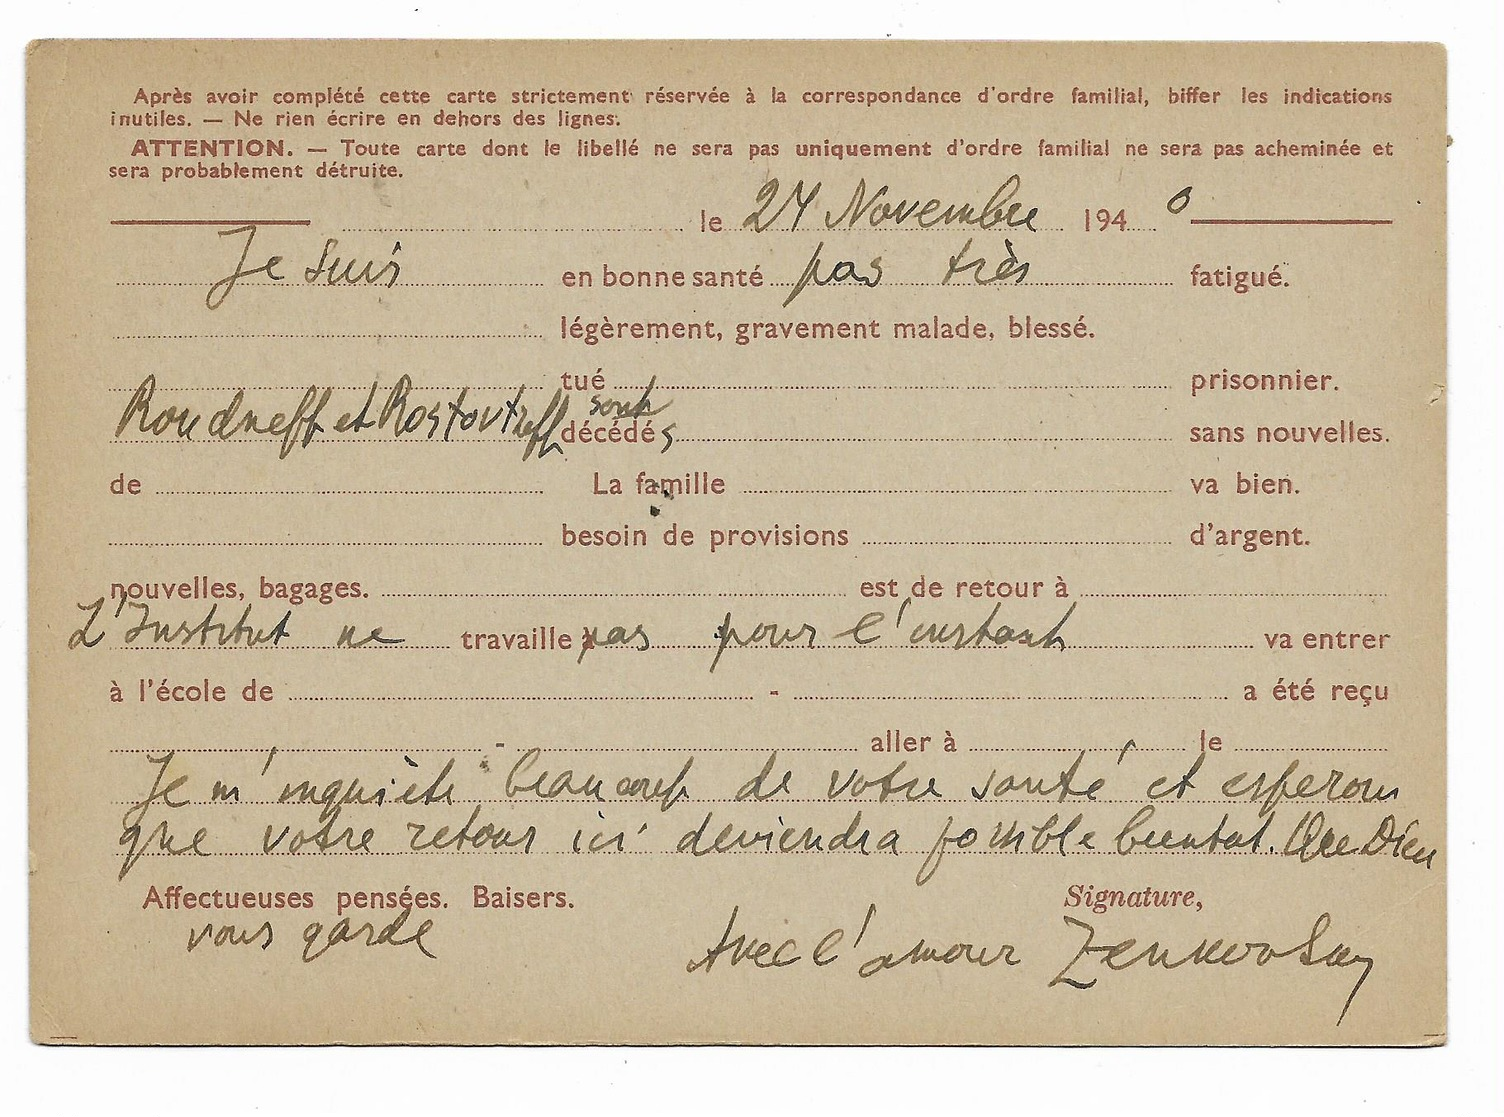 Après avoir complété cette carte strictement réservée à la correspondance d'ordre familial, biffer les indications
inutiles. — Ne rien écrire en dehors des lignes.
ATTENTION. — Toute carte dont le libellé ne sera pas uniquement d'ordre familial ne sera pas acheminée et
sera probablement détruite.
le 24 Novembre 1940
Je suis en bonne santé pas très fatigué.
légèrement, gravement malade, blessé.
tué prisonnier.
Roudneff et Rostovtzeff sont décédés sans nouvelles.
de La famille va bien.
besoin de provisions d'argent.
nouvelles, bagages. est de retour à
L'Institut ne travaille pas pour l'instant va entrer
à l'école de - a été reçu
- aller à le
Je m'inquiète beaucoup de votre santé et esperons
que votre retour ici deviendra possible bientot. Que Dieu
Affectueuses pensées. Baisers. Signature,
vous garde Avec l'amour Zenkovsky